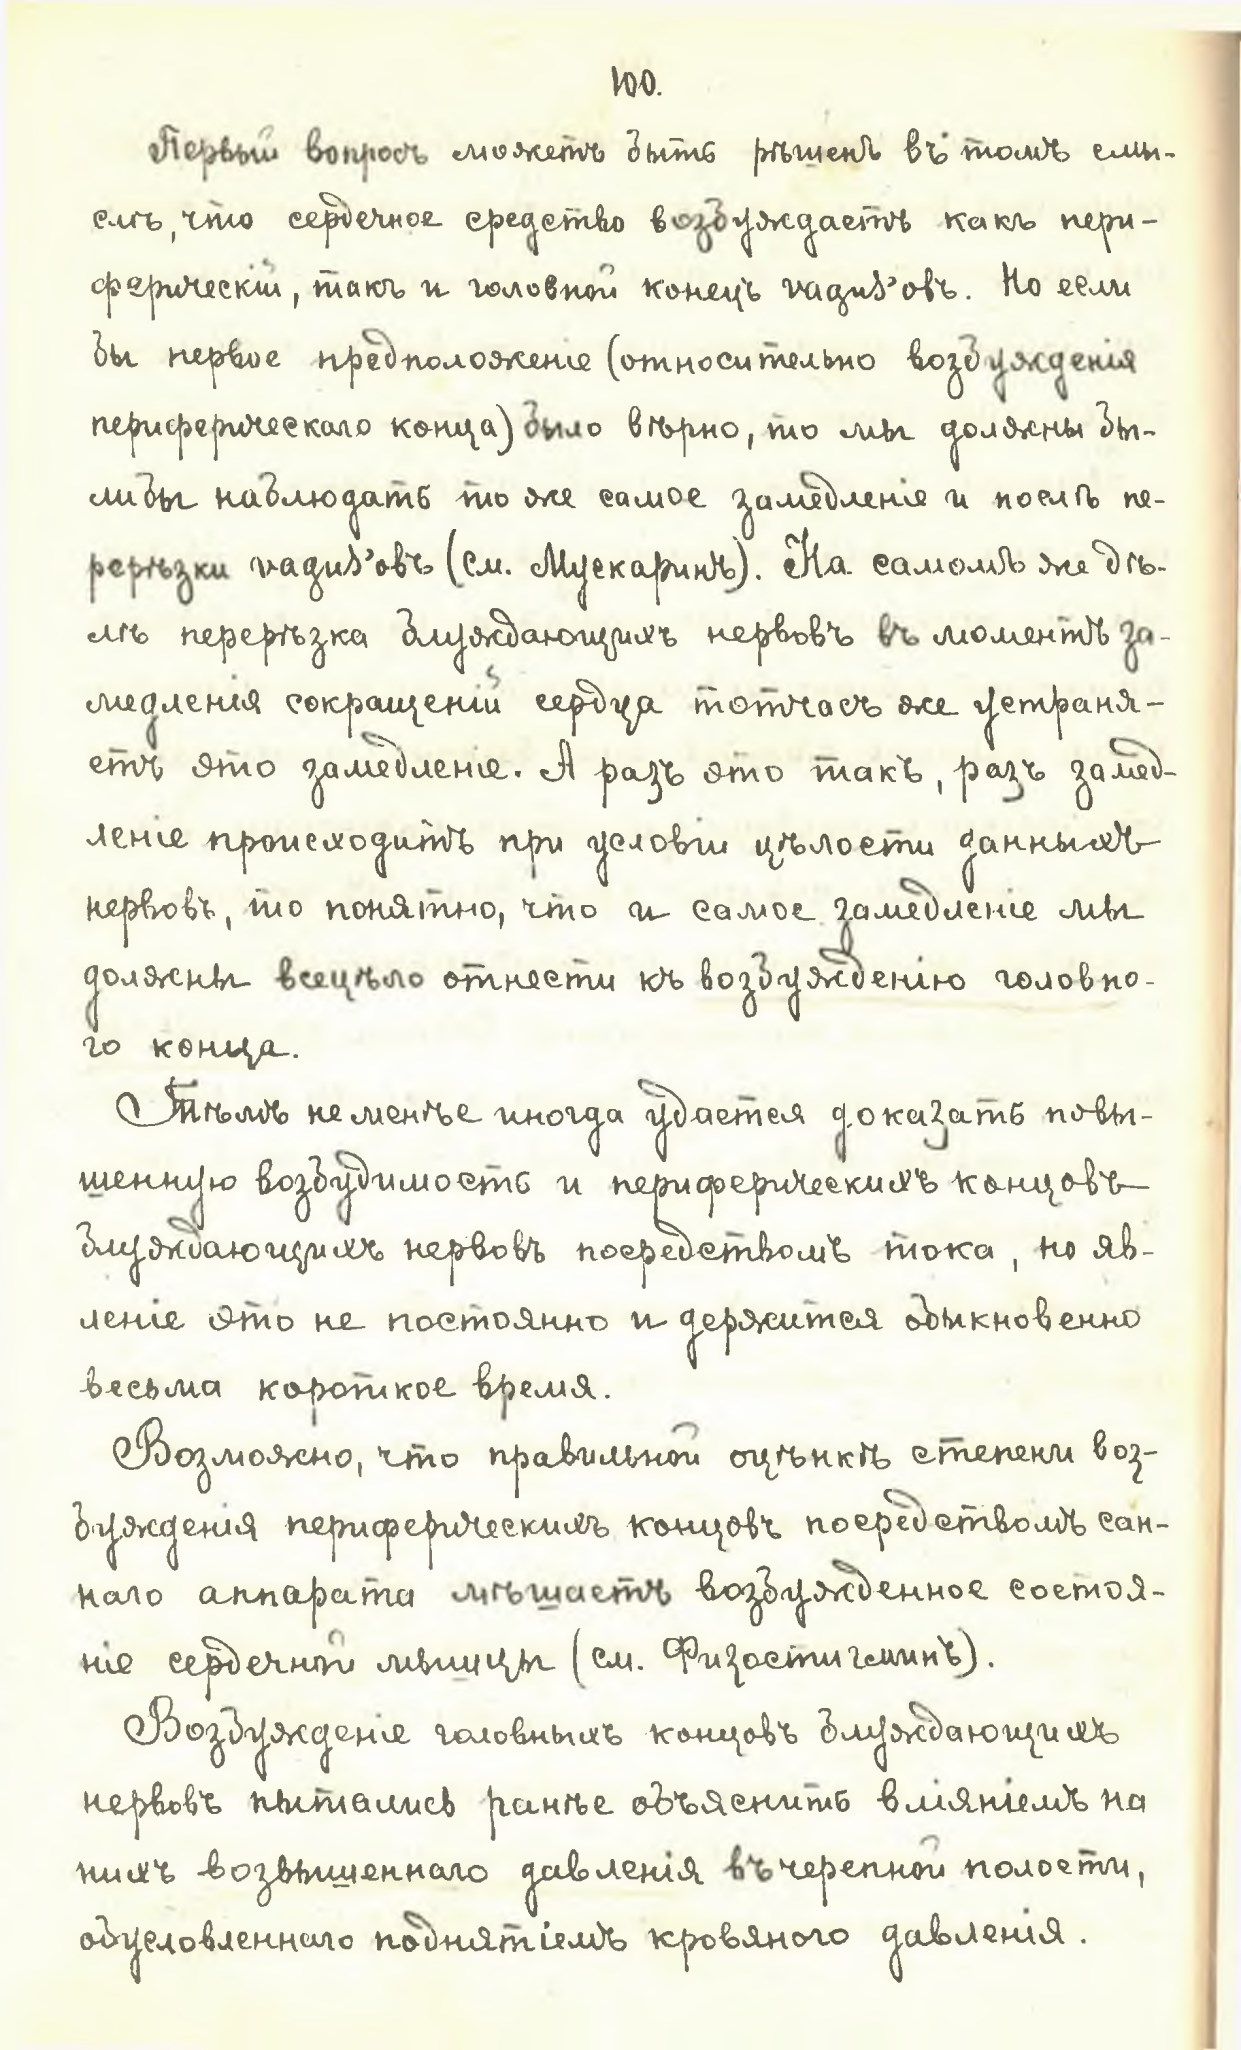 100.
Первый вопросъ можетъ быть рѣшенъ въ томъ смы-
слѣ, что сердечное средство возбуждаетъ какъ пери-
ферическій, такъ и головной конецъ vagus’овъ. Но если
бы первое предположеніе (относительно возбужденія
периферическаго конца) было вѣрно, то мы должны бы-
ли бы наблюдать то же самое замедленіе и послѣ пе-
рерѣзки vagus’овъ (см. Мускаринъ). На самомъ же дѣ-
лѣ перерѣзка блуждающихъ нервовъ въ моментъ за-
медленія сокращеній сердца тотчасъ же устраня-
етъ это замедленіе. А разъ это такъ, разъ замед-
леніе происходитъ при условіи цѣлости данныхъ
нервовъ, то понятно, что и самое замедленіе мы
должны всецѣло отнести къ возбужденію головно-
го конца.
Тѣмъ не менѣе иногда удается доказать повы-
шенную возбудимость и периферическихъ концовъ
блуждающихъ нервовъ посредствомъ тока, но яв-
леніе это не постоянно и держится обыкновенно
весьма короткое время.
Возможно, что правильной оцѣнкѣ степени воз-
бужденія периферическихъ концовъ посредствомъ сан-
наго аппарата мѣшаетъ возбужденное состоя-
ніе сердечной мышцы (см. Физостигминъ).
Возбужденіе головныхъ концовъ блуждающихъ
нервовъ пытались ранѣе объяснить вліяніемъ на
нихъ возвышеннаго давленія въ черепной полости,
обусловленнаго поднятіемъ кровяного давленія.